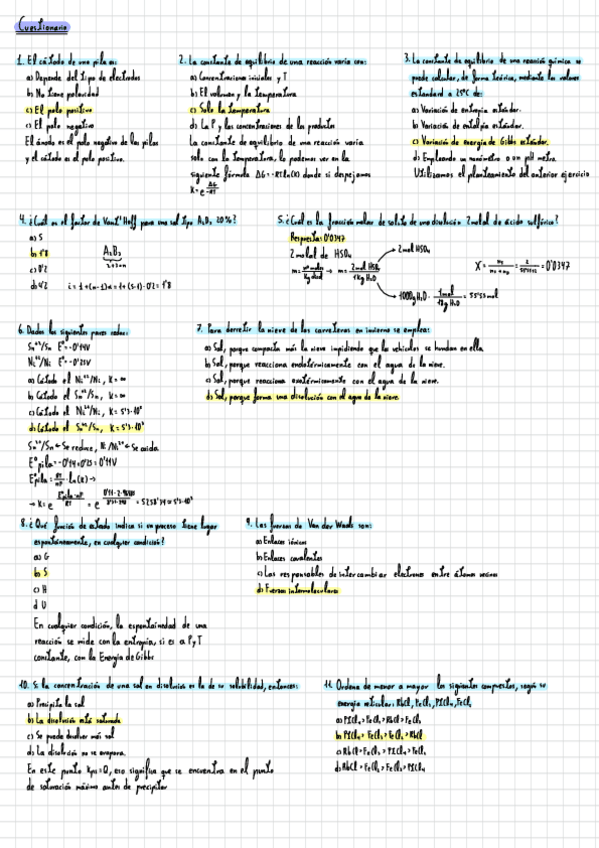 Cuestionario
1. El cátodo de una pila es:
a) Depende del tipo de electrodos
b) No tiene polaridad
c) El polo positivo
c) El polo negativo
El ánodo es el polo negativo de las pilas
y el cátodo es el polo positivo.
2. La constante de equilibrio de una reacción varía con:
a) Concentraciones iniciales y T
b) El volumen y la temperatura
c) Solo la temperatura
d) La P y las concentraciones de los productos
La constante de equilibrio de una reacción varía
solo con la temperatura, lo podemos ver en la
siguiente fórmula ΔG = -RTln(K) donde si despejamos
3. La constante de equilibrio de una reacción química se
puede calcular, de forma teórica, mediante los valores
estándard a 25ºC de:
a) Variación de entropía estándar.
b) Variación de entalpía estándar.
c) Variación de energía de Gibbs estándar.
d) Empleando un manómetro o un pH metro.
Utilizamos el planteamiento del anterior ejercicio
4. ¿Cuál es el factor de Vant' Hoff para una sal tipo A₂B₃ 20%?
a) 5
b) 1'8
c) 0'2
d) 4'2 i = 1+(n-1)α = 1+(5-1)·0'2 = 1'8
A₂B₃
2+3=n
5. ¿Cuál es la fracción molar de soluto de una disolución 2molal de ácido sulfúrico?
Respuesta: 0'0347
2 molal de HSO₄
2mol HSO₄
1000g H₂O · 1mol / 18g H₂O = 55'55mol
6. Dados los siguientes pares redox:
Sn²⁺/Sn E° = -0'14V
Ni²⁺/Ni E° = -0'25V
a) Cátodo el Ni²⁺/Ni, K = ∞
b) Cátodo el Sn²⁺/Sn, K = ∞
c) Cátodo el Ni²⁺/Ni, K = 5'3·10³
d) Cátodo el Sn²⁺/Sn, K = 5'3·10³
Sn²⁺/Sn ← Se reduce, Ni/Ni²⁺ ← Se oxida
E°pila = -0'14+0'25 = 0'11V
7. Para derretir la nieve de las carreteras en invierno se emplea:
a) Sal, porque compacta más la nieve impidiendo que los vehículos se hundan en ella
b) Sal, porque reacciona endotérmicamente con el agua de la nieve.
c) Sal, porque reacciona exotérmicamente con el agua de la nieve.
d) Sal, porque forma una disolución con el agua de la nieve
8. ¿Qué función de estado indica si un proceso tiene lugar
espontáneamente, en cualquier condición?
a) G
b) S
c) H
d U
En cualquier condición, la espontaineidad de una
reacción se mide con la entropía, si es a P y T
constante, con la Energía de Gibbs
9. Las fuerzas de Van der Waals son:
a) Enlaces iónicos
b) Enlaces covalentes
c) Las responsables de intercambiar electrones entre átomos vecinos
d) Fuerzas intermoleculares
10. Si la concentración de una sal en disolución es la de su solubilidad, entonces:
a) Precipita la sal
b) La disolución está saturada
c) Se puede disolver más sal
d) La disolución no se evapora.
En este punto Kps=Q, eso significa que se encuentra en el punto
de saturación máximo antes de precipitar
11. Ordena de menor a mayor los siguientes compuestos, según su
energía reticular: RbCl, FeCl₃, PtCl₄, FeCl₂